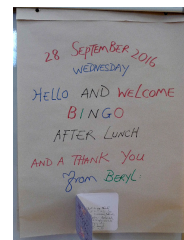 28 September 2016
WEDNESDAY
HELLO AND WELCOME
BINGO
AFTER LUNCH
AND A THANK YOU
from BERYL